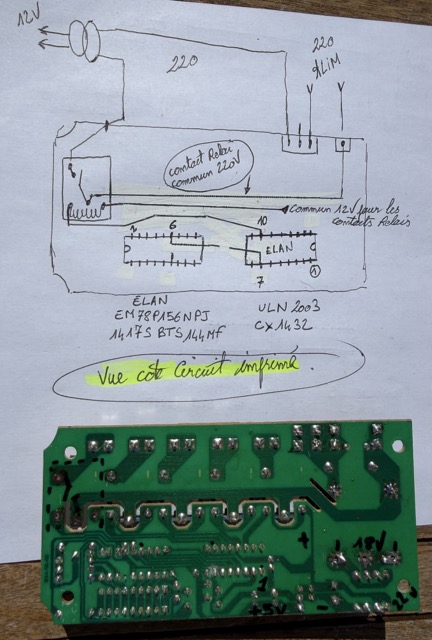 12V
220
220
ALiM
contact Relai
commun 220V
Commun 12V pour les
contacts Relais
1 6 10
ELAN
7 1
ELAN ULN 2003
EM78P156NPJ CX1432
1417S BTS144Mf
Vue coté Circuit imprimé.
+ 18V
1
+5V - 220